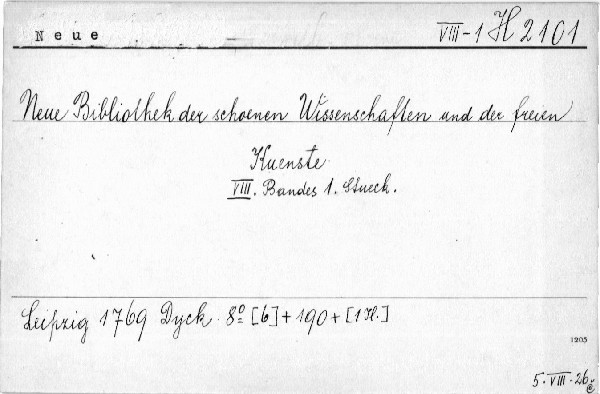 Neue
VIII-1 H 2101
Neue Bibliothek der schoenen Wissenschaften und der freien
Kuenste
VIII. Bandes 1. Stueck.
Leipzig 1769 Dyck. 8º [6]+190+[1 Kl.]
1205
5.VIII.26.